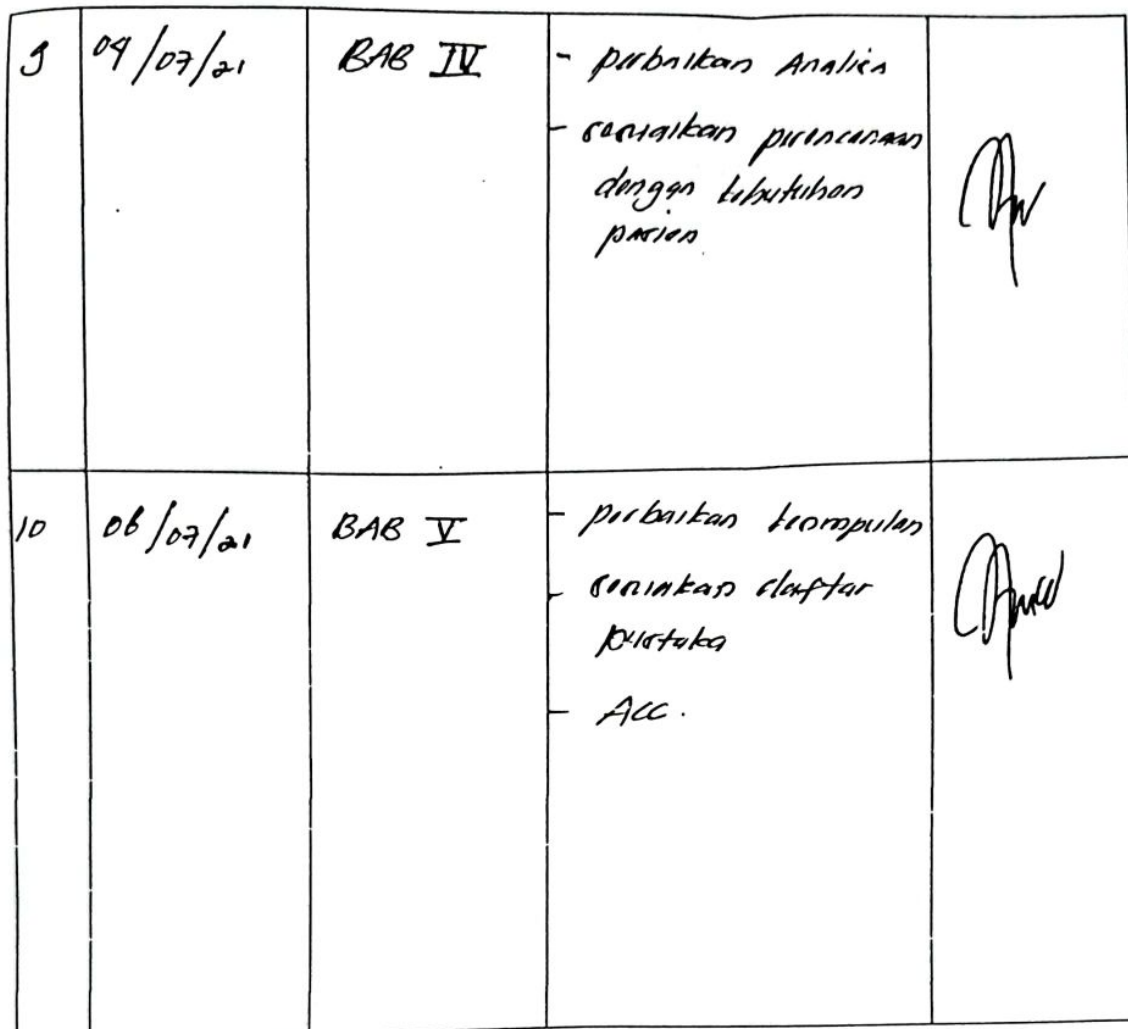 9 04/07/21 BAB IV - perbaikan Analisa
- sesuaikan perencanaan
dengan kebutuhan
pasien.
10 06/07/21 BAB V - perbaikan kesimpulan
- sesuaikan daftar
pustaka
- ACC.